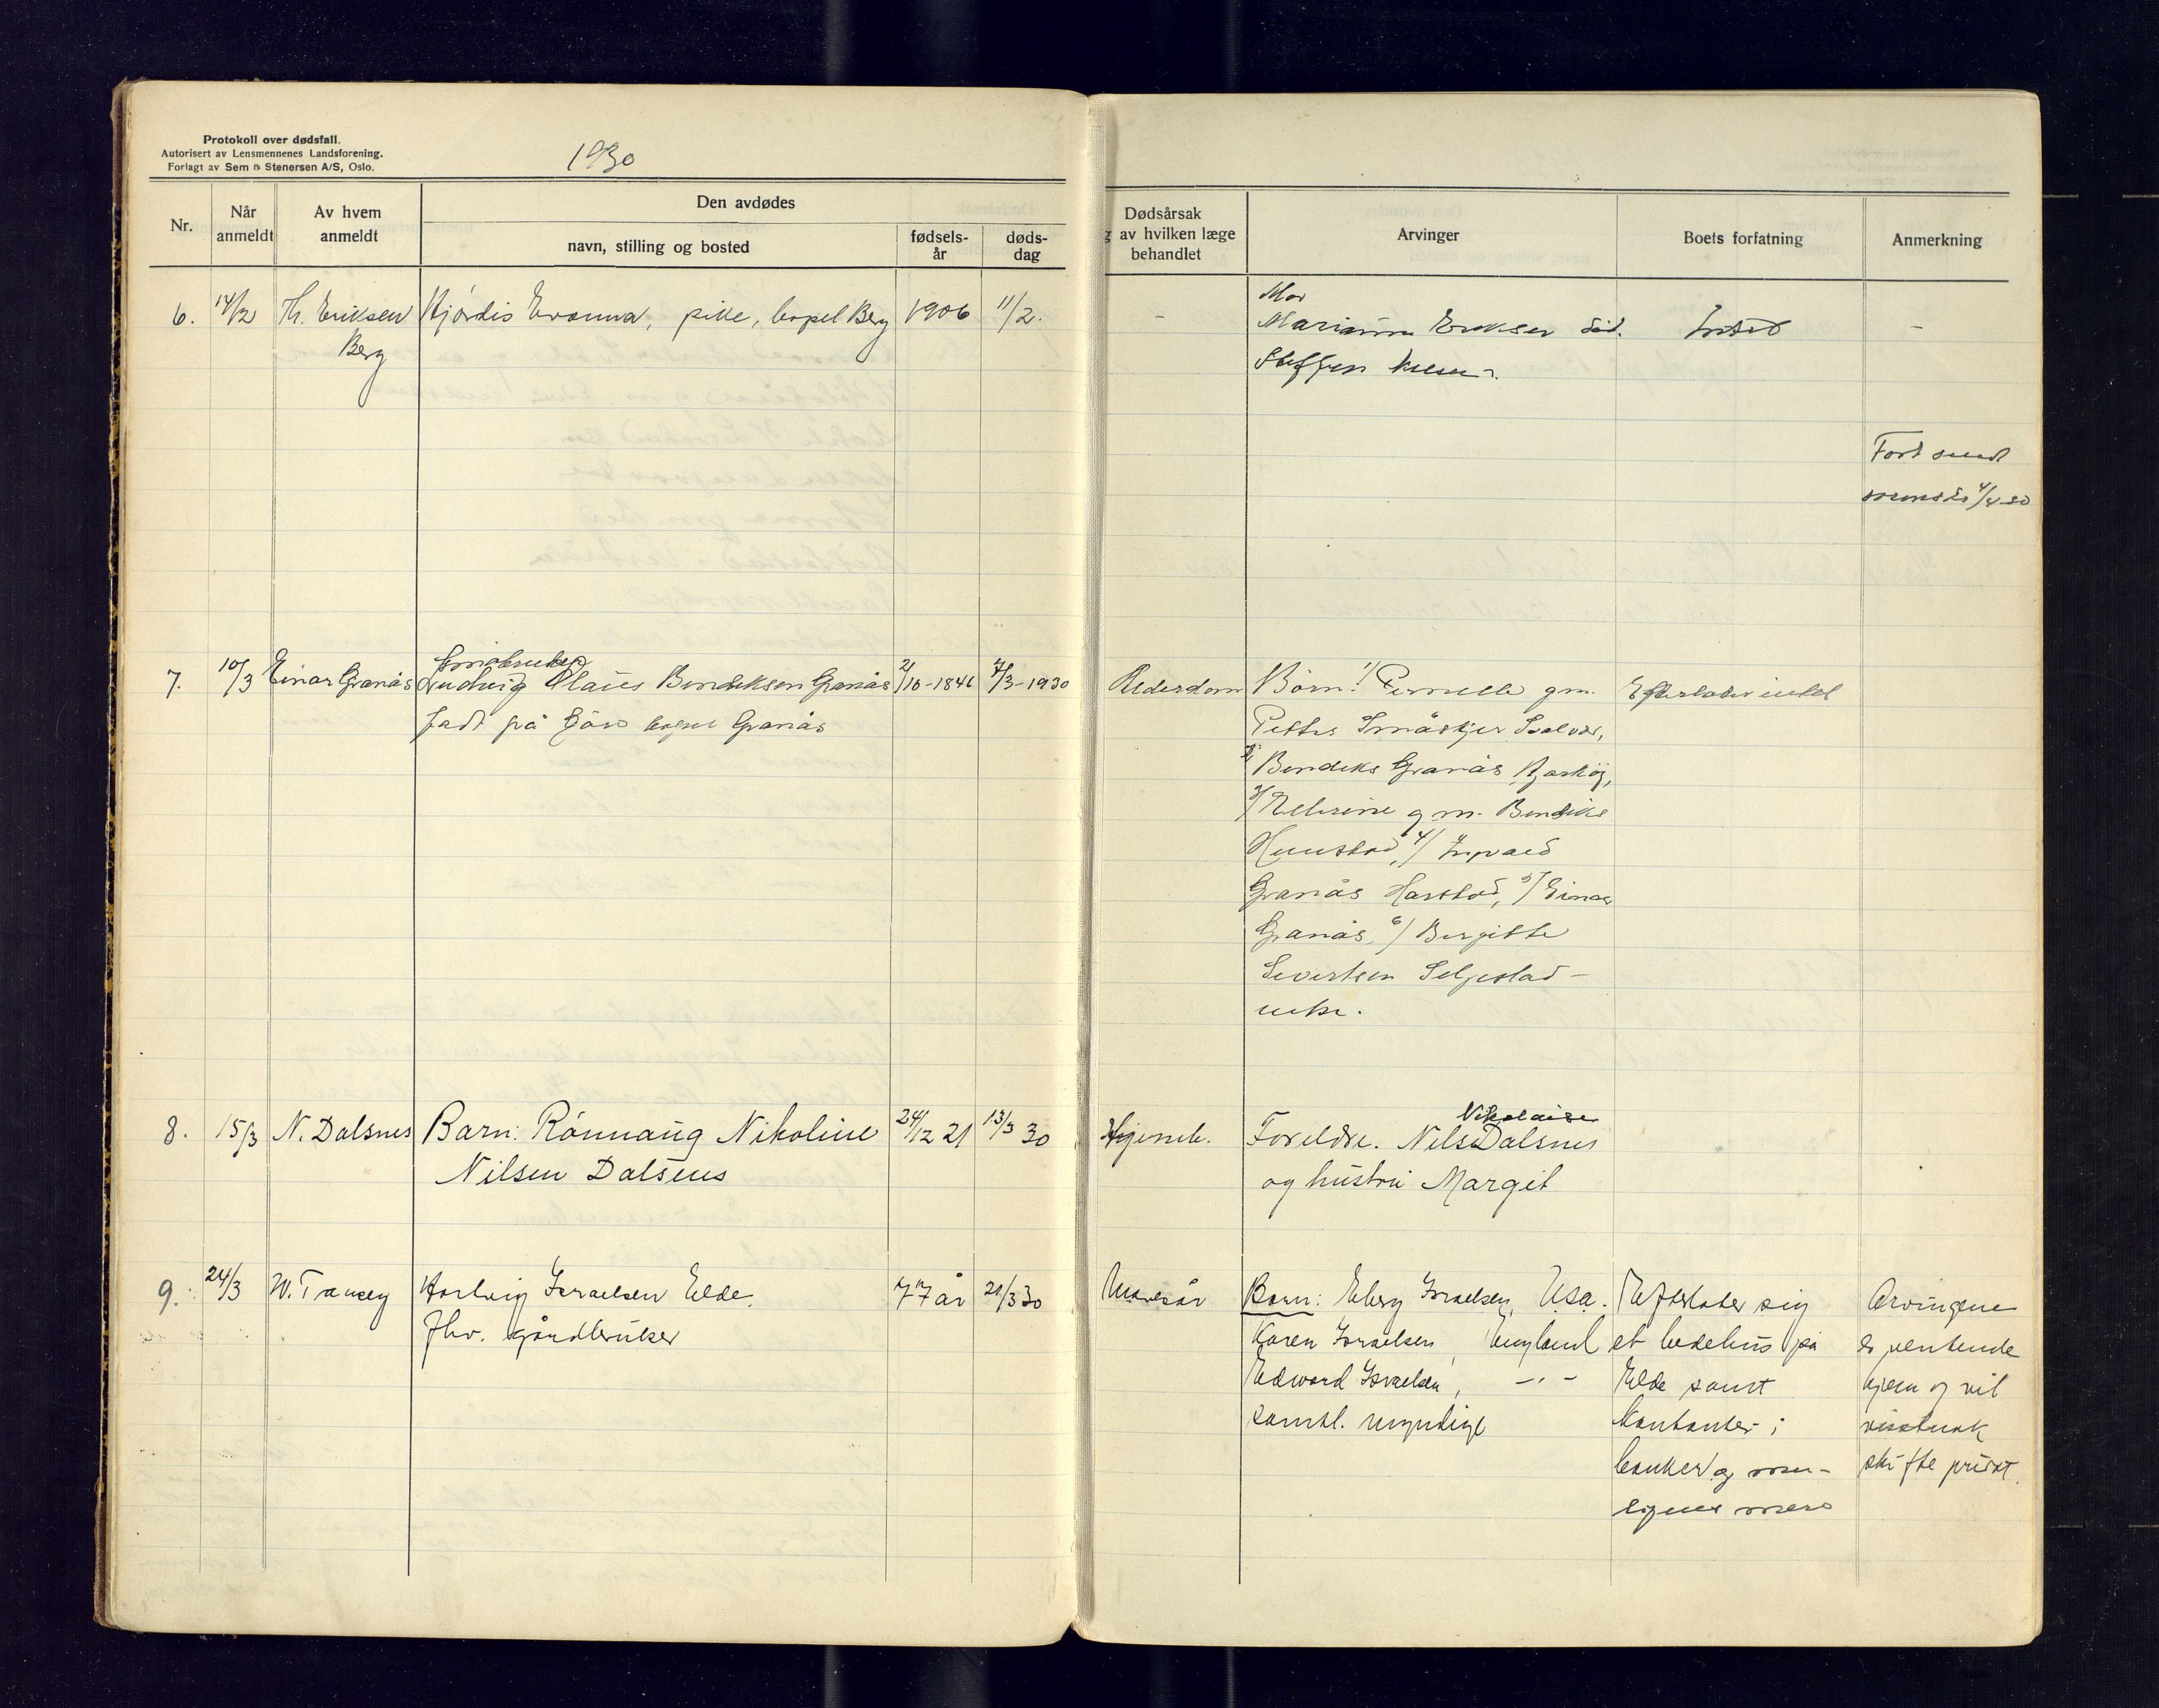 Protokoll over dødsfall.
Autorisert av Lensmennenes Landsforening.
Forlagt av Sem & Stenersen A/S, Oslo.
1930
Nr.
Når anmeldt
Av hvem anmeldt
Den avdødes
navn, stilling og bosted
fødsels-år
døds-dag
Dødsårsak
av hvilken læge
behandlet
Arvinger
Boets forfatning
Anmerkning
6. 14/2 Eriksen Hjørdis pike, bopel Berg 1906 11/2. -
Berg
Mor
Eriksen Intet -
Steffen
Fort
4/4 30
7. 10/3 Einar Granås Ludvig Claus Bendiksen Granås 2/10-1846 7/3-1930 Alderdom Børn: 1/ Pernelle gm. Efterlater intet
født på bopel Granås
Petter Småskjer
2/ Bendiks Granås Bjarkøj,
3/ gm. Bendiks
4/
Granås Harstad, 5/ Einar
Granås, 6/ Bergitte
Severtsen Seljestad -
enke.
8. 15/3 N. Dalsnes Barn: Rønnaug Nikoline 24/12 21 13/3 30 Foreldre. Nils Dalsnes
Nikolaisen
Nilsen Dalsnes
og hustru Margit
9. 24/3 W. Tansey Hartvig Israelsen Elde. 77 år 21/3 30 Mavesår Barn: Israelsen, Usa. Efterlater sig Arvingene
fhv. gårdbruker
Karen Israelsen, England et bedehus på er ventende
Edward Israelsen, -"- Elde samt hjem og vil
samtl. myndige kontanter i
banker og skifte privat.